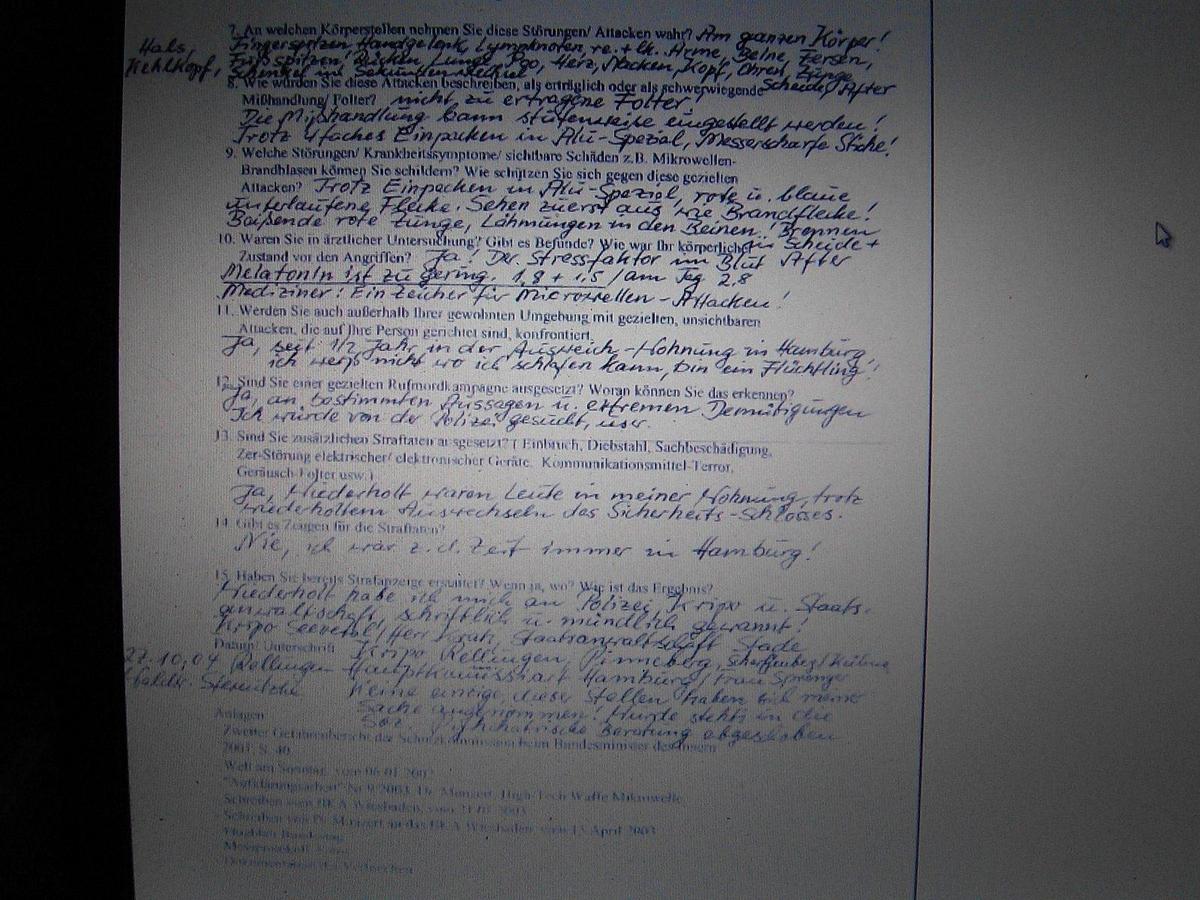 7. An welchen Körperstellen nehmen Sie diese Störungen/ Attacken wahr? Am ganzen Körper!
Hals,
Kehlkopf,
Fingerspitzen, Handgelenk, Lymphknoten, re. + lk. Arme, Beine, Fersen,
Fußspitzen, Rücken, Lunge, Popo, Herz, Nacken, Kopf, Ohren, Zunge,
Schenkel im Sekundenwechsel Scheide, After
8. Wie würden Sie diese Attacken beschreiben, als erträglich oder als schwerwiegende
Mißhandlung/ Folter? nicht zu ertragene Folter!
Die Mißhandlung kann stufenweise eingestellt werden!
Trotz 4faches Einpacken in Alu-Spezial, Messerscharfe Stiche!
9. Welche Störungen/ Krankheitssymptome/ sichtbare Schäden z.B. Mikrowellen-
Brandblasen können Sie schildern? Wie schützen Sie sich gegen diese gezielten
Attacken? Trotz Einpacken in Alu-Spezial, rote u. blaue
unterlaufene Flecke. Sehen zuerst aus wie Brandflecke!
Beißende rote Zunge, Lähmungen in den Beinen! Brennen
in Scheide +
After
10. Waren Sie in ärztlicher Untersuchung? Gibt es Befunde? Wie war Ihr körperlicher
Zustand vor den Angriffen? Ja! Der Stressfaktor im Blut
Melatonin ist zu gering. 1,8 + 1,5 / am Tag 2,8
Mediziner: Ein Zeichen für Microwellen-Attacken!
11. Werden Sie auch außerhalb Ihrer gewohnten Umgebung mit gezielten, unsichtbaren
Attacken, die auf Ihre Person gerichtet sind, konfrontiert.
Ja, seit 1/2 Jahr in der Ausweich-Wohnung in Hamburg,
ich weiß nicht wo ich schlafen kann, bin ein Flüchtling!
12. Sind Sie einer gezielten Rufmordkampagne ausgesetzt? Woran können Sie das erkennen?
Ja, an bestimmten Aussagen u. extremen Demütigungen
Ich würde von der Polizei gesucht, usw.
13. Sind Sie zusätzlichen Straftaten ausgesetzt? ( Einbruch, Diebstahl, Sachbeschädigung,
Zer-Störung elektrischer/ elektronischer Geräte, Kommunikationsmittel-Terror,
Geräusch-Folter usw.)
Ja, Wiederholt waren Leute in meiner Wohnung, trotz
wiederholtem Auswechseln des Sicherheits-Schlosses.
14. Gibt es Zeugen für die Straftaten?
Nie, ich war z. d. Zeit immer in Hamburg!
15. Haben Sie bereits Strafanzeige erstattet? Wenn ja, wo? Wie ist das Ergebnis?
Wiederholt habe ich mich an Polizei, Kripo u. Staats-
anwaltschaft, schriftlich u. mündlich gewannt!
Kripo Seevetal/ Herr Staatsanwaltschaft Stade
Datum/ Unterschrift Kripo Rellingen, Pinneberg,
27.10.04 Rellingen Hamburg/ Frau Sprenger
Keine einzige dieser Stellen haben sich meiner
Sache angenommen! Wurde stehts in die
Psychatrische Beratung abgeschoben
Anlagen
Zweiter Gefahrenbericht der Schutzkommission beim Bundesminister des Innern
2001, S. 40
Welt am Sonntag, vom
"Aufklärungsarbeit" Nr. 9/2003, Dr. Munzert, High-Tech-Waffe Mikrowelle
Schreiben vom BKA Wiesbaden, vom
Schreiben von Dr. Munzert an das BKA Wiesbaden, vom 13. April 2003
Flugblatt
Messprotokoll
Dokumentation des Verbrechen